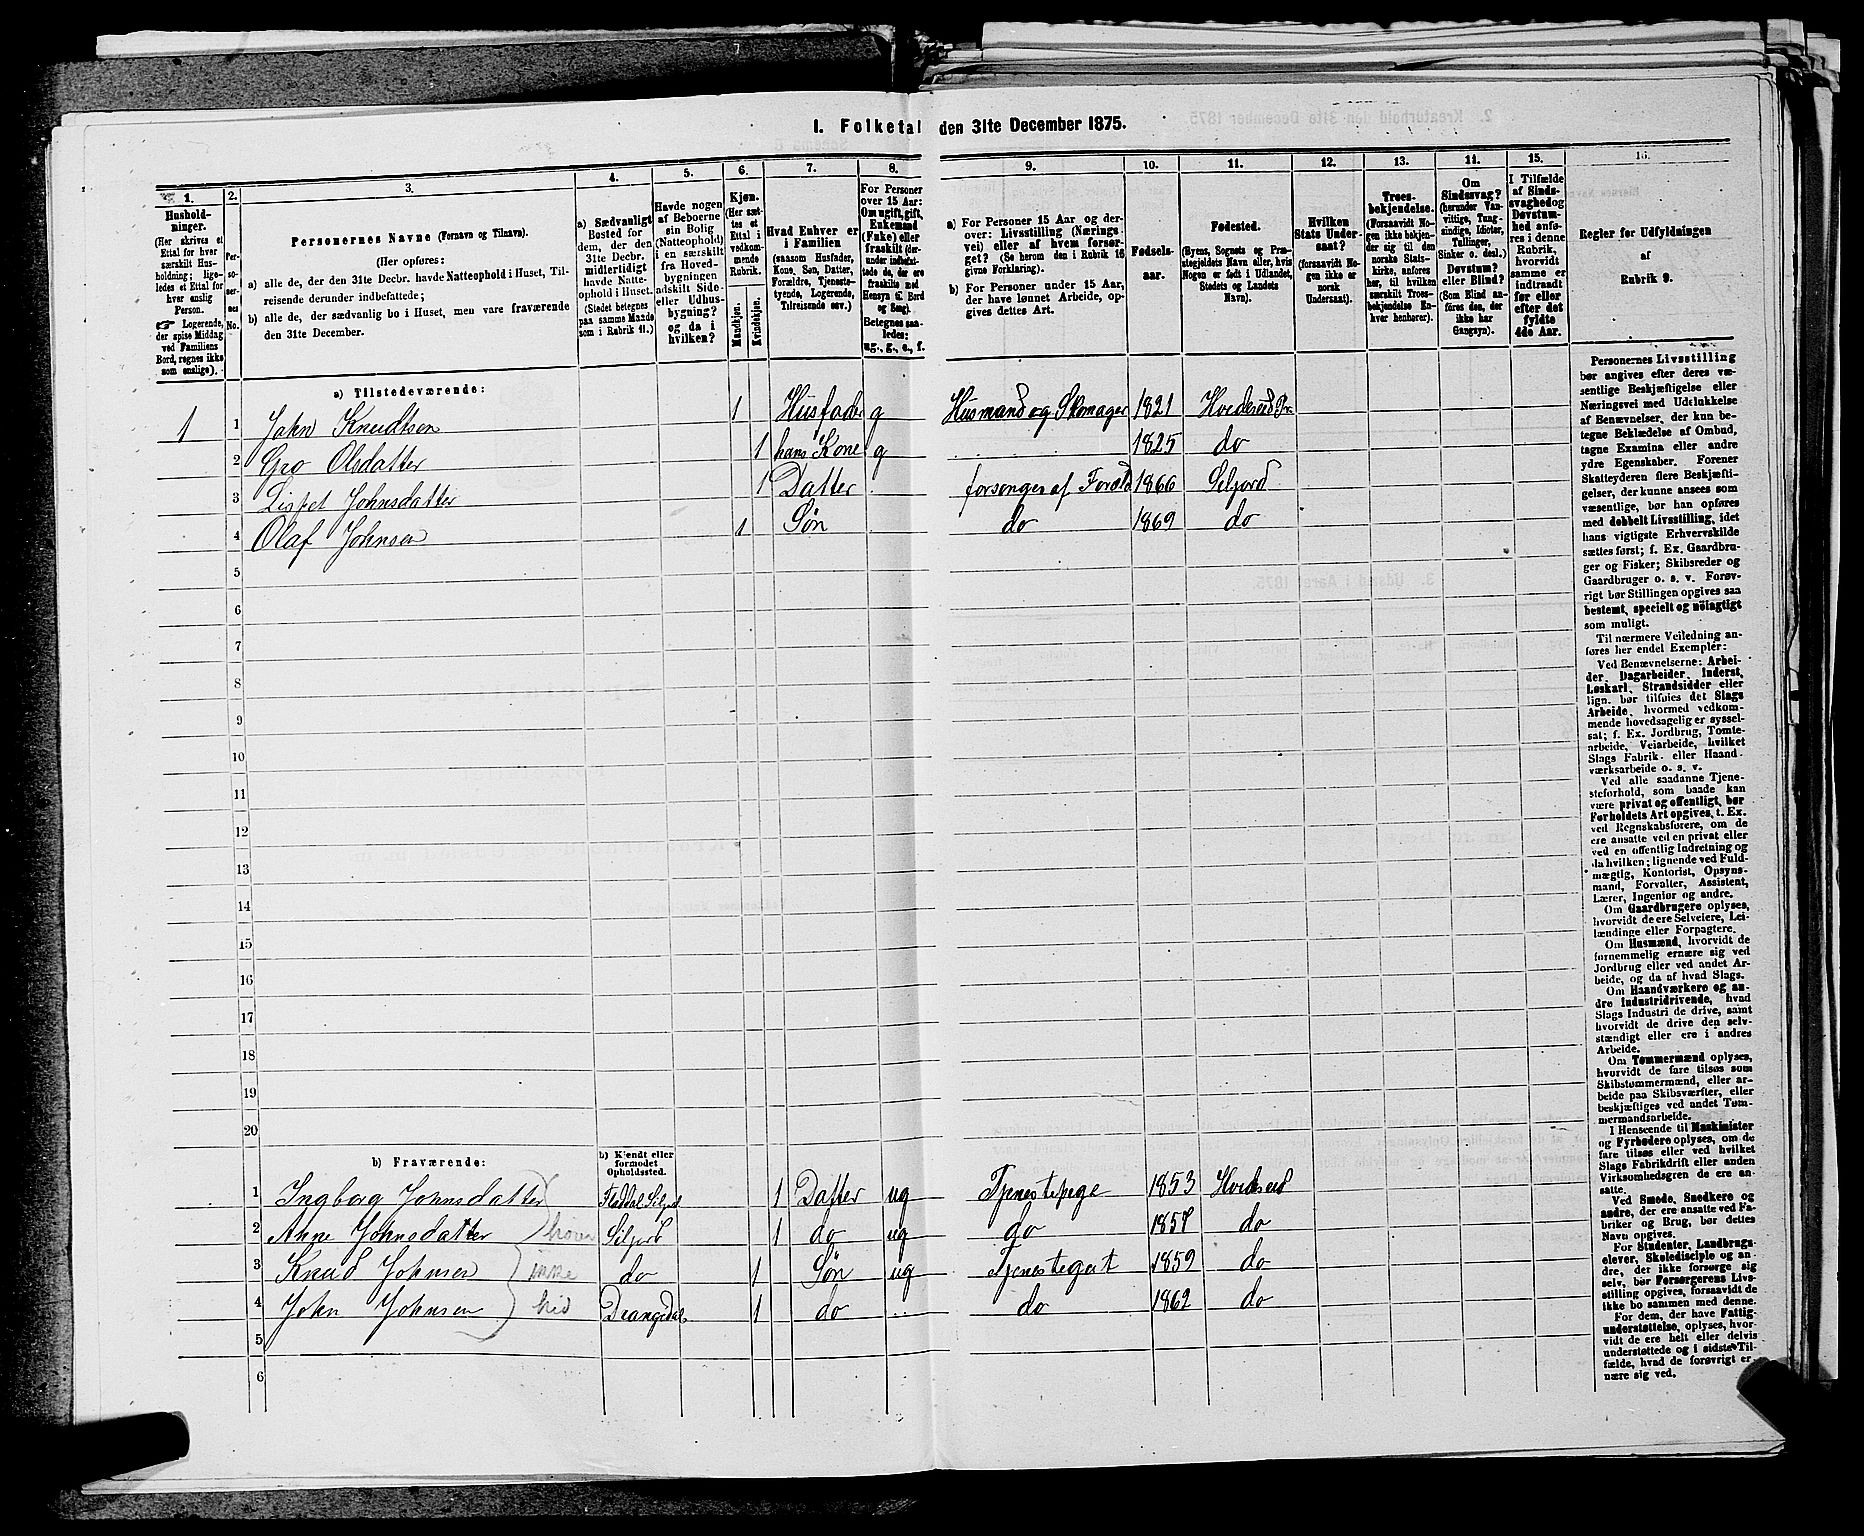 I. Folketal den 31te December 1875.
1. 2. 3. 4. 5. 6. 7. 8. 9. 10. 11. 12. 13. 14. 15. 16.
Hushold-
ninger.
(Her skrives et
Ettal for hver
særskilt Hus-
holdning; lige-
ledes et Ettal for
hver enslig
Person.
☞ Logerende,
der spise Middag
ved Familiens
Bord, regnes ikke
som enslige).
Per-
so-
ner-
nes
No.
Personernes Navne (Fornavn og Tilnavn).
(Her opføres:
a) alle de, der den 31te Decbr. havde Natteophold i Huset, Til-
reisende derunder indbefattede;
b) alle de, der sædvanlig bo i Huset, men vare fraværende
den 31te December.
a) Sædvanligt
Bosted for
dem, der den
31te Decbr.
midlertidigt
havde Natte-
ophold i Huset.
(Stedet betegnes
paa samme Maade
som i Rubrik 11.)
Havde nogen
af Beboerne
sin Bolig
(Natteophold)
i en særskilt
fra Hoved-
bygningen
adskilt Side-
eller Udhus-
bygning?
og da i
hvilken?
Kjøn.
(Her sæt-
tes et
Ettal i
vedkom-
mende
Rubrik.
Mandkjøn.
Kvindekjøn.
Hvad Enhver er
i Familien
(saasom Husfader,
Kone, Søn, Datter,
Forældre, Tjeneste-
tyende, Logerende,
Tilreisende osv.)
For Personer
over 15 Aar:
Om ugift, gift,
Enkemand
(Enke) eller
fraskilt (der-
under indbefat-
tede de, der ere
fraskilte med
Hensyn til Bord
og Seng).
Betegnes saa-
ledes:
ug., g., e., f.
a) For Personer 15 Aar og der-
over: Livsstilling (Nærings-
vei) eller af hvem forsør-
get? (Se herom den i Rubrik 16
givne Forklaring).
b) For Personer under 15 Aar,
der have lønnet Arbeide, op-
gives dettes Art.
Fødsels-
aar.
Fødested.
(Byens, Sognets og Præ-
stegjeldets Navn eller, hvis
Nogen er født i Udlandet,
Stedets og Landets
Navn).
Hvilken
Stats Under-
saat?
(forsaavidt No-
gen ikke er
norsk
Undersaat).
Troes-
bekjendelse.
(Forsaavidt No-
gen ikke bekjen-
der sig til den
norske Stats-
kirke, anføres
her, til hvilken
særskilt Troes-
bekjendelse En-
hver henhører).
Om
Sindssvag?
(herunder Van-
vittige, Tung-
sindige, Idioter,
Tullinger,
Sinker o. desl.)
Døvstum?
eller Blind?
(Som Blind an-
føres den, der
ikke har
Gangsyn).
I Tilfælde
af Sinds-
svaghed og
Døvstum-
hed anfø-
res i denne
Rubrik,
hvorvidt
samme er
indtraadt
før eller
efter det
fyldte
4de Aar.
Regler for Udfyldningen
af
Rubrik 9.
a) Tilstedeværende:
1 1 John Knudtsen 1 Husfader g Husmand og Skomager 1821 Hvideseid Pr
2 Gro Olsdatter 1 hans Kone g 1825 do
3 Lispet Johnsdatter 1 Datter forsørges af Foræld 1866 Seljord
4 Olaf Johnsen 1 Søn do 1869 do
5
6
7
8
9
10
11
12
13
14
15
16
17
18
19
20
b) Fraværende:
b) Kjendt eller
formodet
Opholdssted.
1 Ingborg Johnsdatter 1 Datter ug Tjenestepige 1853 Hvideseid
2 Anne Johnsdatter Siljord 1 do ug do 1857 do
3 Knud Johnsen do 1 Søn ug Tjenestegut 1859 do
4 John Johnsen Drangedal 1 do do 1862 do
5
6
Personernes Livsstilling
bør angives efter deres væ-
sentlige Beskjæftigelse eller
Næringsvei med Udelukkelse
af Benævnelser, der kun be-
tegne Beklædelse af Ombud,
tagne Examina eller andre
ydre Egenskaber. Forener
Skatteyderen flere Beskjæfti-
gelser, der kunne ansees som
væsentlige, bør han opføres
med dobbelt Livsstilling, idet
hans vigtigste Erhvervskilde
sættes først; f. Ex. Gaardbru-
ger og Fisker; Skibsreder og
Gaardbruger o. s. v. Forøv-
rigt bør Stillingen opgives saa
bestemt, specielt og nöiagtigt
som muligt.
Til nærmere Veiledning an-
føres her endel Exempler:
Ved Benævnelserne: Arbei-
der, Dagarbeider, Inderst,
Løskarl, Strandsidder eller
lign. bør tilføies det Slags
Arbeide, hvormed vedkom-
mende hovedsagelig er syssel-
sat; f. Ex. Jordbrug, Tomte-
arbeide, Veiarbeide, hvilket
Slags Fabrik- eller Haand-
værksarbeide o. s. v.
Ved alle saadanne Tjene-
steforhold, som baade kan
være privat og offentligt, bør
Forholdets Art opgives, t. Ex.
ved Regnskabsførere, om de
ere ansatte ved en privat eller
ved en offentlig Indretning og
da hvilken; lignende ved Fuld-
mægtig, Kontorist, Opsyns-
mand, Forvalter, Assistent,
Lærer, Ingeniør og andre.
Om Gaardbrugere oplyses,
hvorvidt de ere Selveiere, Lei-
lændinge eller Forpagtere.
Om Husmænd, hvorvidt de
fornemmelig ernære sig ved
Jordbrug eller ved andet Ar-
beide, og da af hvad Slags.
Om Haandværkere og an-
dre Industridrivende, hvad
Slags Industri de drive, samt
hvorvidt de drive den selv-
stændigt eller ere i andres
Arbeide.
Om Tømmermænd oplyses,
hvorvidt de fare tilsøs som
Skibstømmermænd, eller ar-
beide paa Skibsværfter, eller
beskjæftiges ved andet Tøm-
mermandsarbeide.
I Henseende til Maskinister
og Fyrbødere oplyses, om de
fare tilsøs eller ved hvilket
Slags Fabrikdrift eller anden
Virksomhedsgren de ere an-
satte.
Ved Smede, Snedkere og
andre, der ere ansatte ved Fa-
briker og Brug, bør dettes
Navn opgives.
For Studenter, Landbrugs-
elever, Skoledisciple og an-
dre, der ikke forsørge sig
selv, bør Forsørgerens Livs-
stilling opgives, forsaavidt de
ikke bo sammen med denne.
For dem, der have Fattig-
understøttelse, oplyses, hvor-
vidt de ere helt eller delvis
understøttede og i sidste Til-
fælde, hvad de forøvrigt er-
nære sig ved.